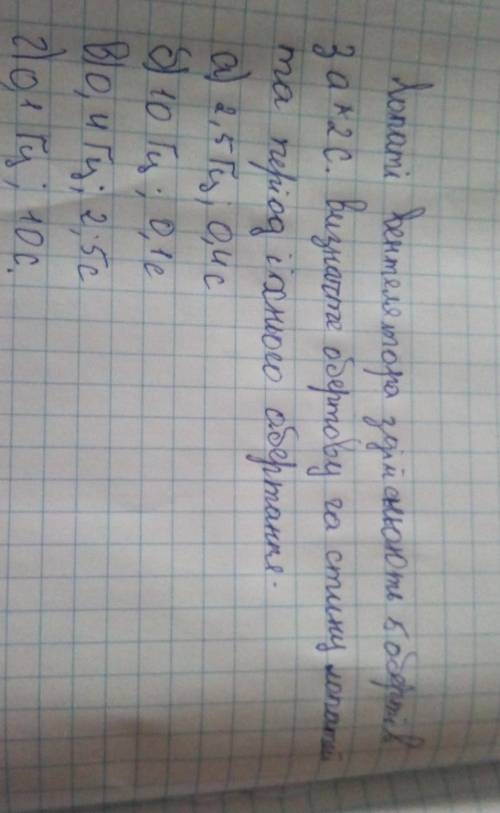 Лопаті вентелятора здійснюють 5 обертів
За 2 с. Визначте обертову частину лопатей
та період їхнього обертання.
а) 2,5 Гц; 0,4 с
б) 10 Гц; 0,1 с
в) 0,4 Гц; 2,5 с
г) 0,1 Гц; 10 с.